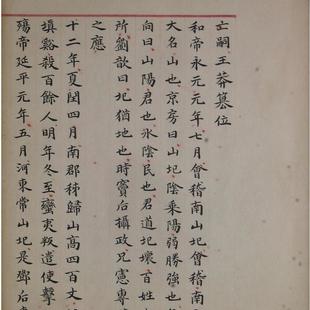 亡嗣王莽篡位
和帝永元元年七月會稽南山圮會稽南
大名山也京房曰山圮陰乘陽弱勝強也
向曰山陽君也水陰民也君道圮壞百姓
所劉歆曰圮猶地也時竇后攝政兄憲專
之應
十二年夏閏四月南郡秭歸山高四百丈
填谿殺百餘人明年冬至蠻夷叛遣使擊
殤帝延平元年五月河東常山圮是鄧后